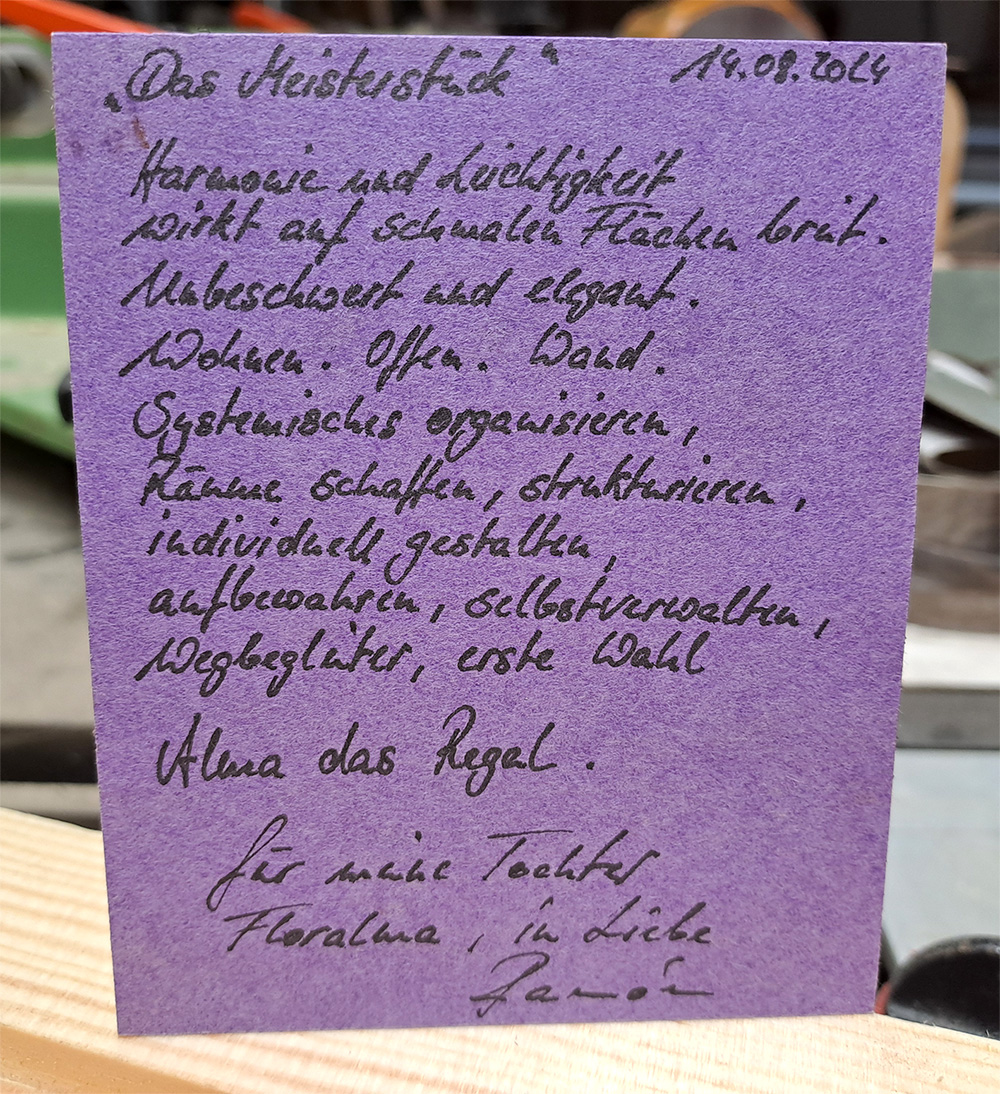 „Das Meisterstück“ 14.08.2024
Harmonie und Leichtigkeit
wirkt auf schmalen Flächen breit.
Unbeschwert und elegant.
Wohnen. Offen. Wand.
Systemisches organisieren,
Räume schaffen, strukturieren,
individuell gestalten,
aufbewahren, selbstverwalten,
Wegbegleiter, erste Wahl
Alma das Regal.
für meine Tochter
Floralma, in Liebe
Ramón